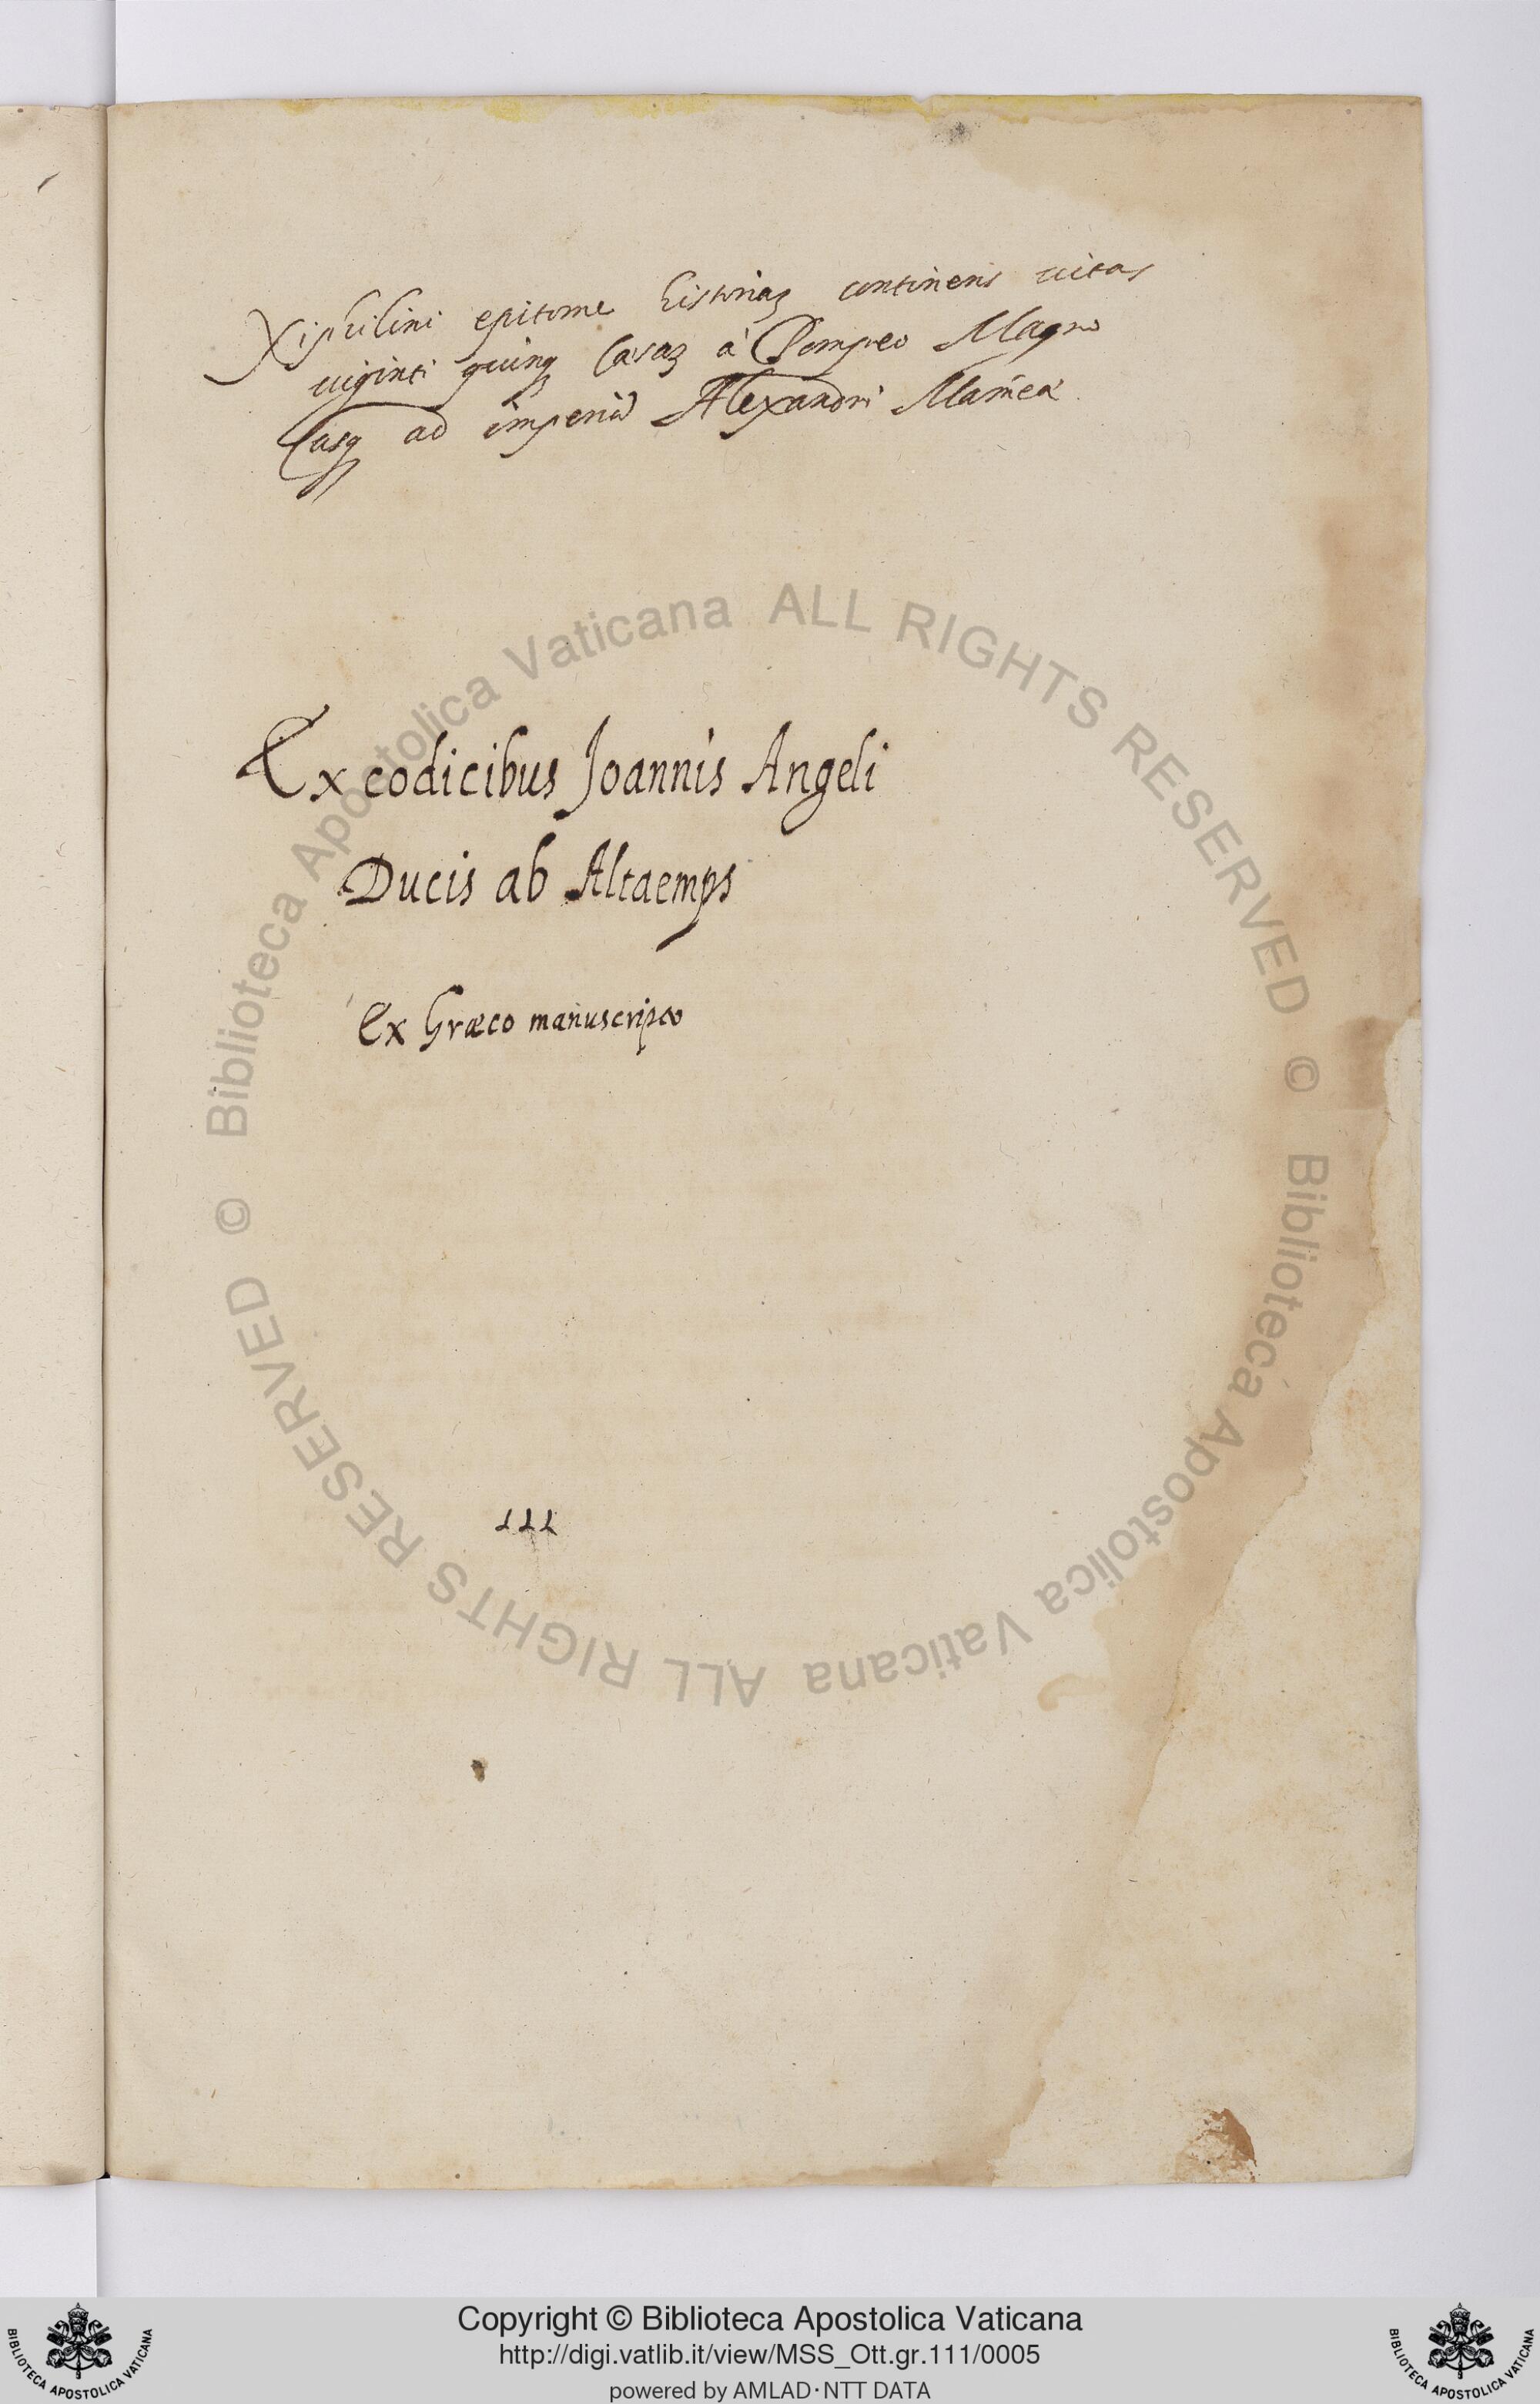 Xiphilini epitome historiaꝝ continens uitas
uiginti quinqꝫ Cæsaꝝ à Pompeo Magno
usqꝫ ad imperiū Alexandri Mam̃eæ
Ex codicibus Joannis Angeli
Ducis ab Altaemps
Ex Græco manuscripto
111
© Biblioteca Apostolica Vaticana ALL RIGHTS RESERVED
© Biblioteca Apostolica Vaticana ALL RIGHTS RESERVED
BIBLIOTECA APOSTOLICA VATICANA
Copyright © Biblioteca Apostolica Vaticana
http://digi.vatlib.it/view/MSS_Ott.gr.111/0005
powered by AMLAD·NTT DATA
BIBLIOTECA APOSTOLICA VATICANA